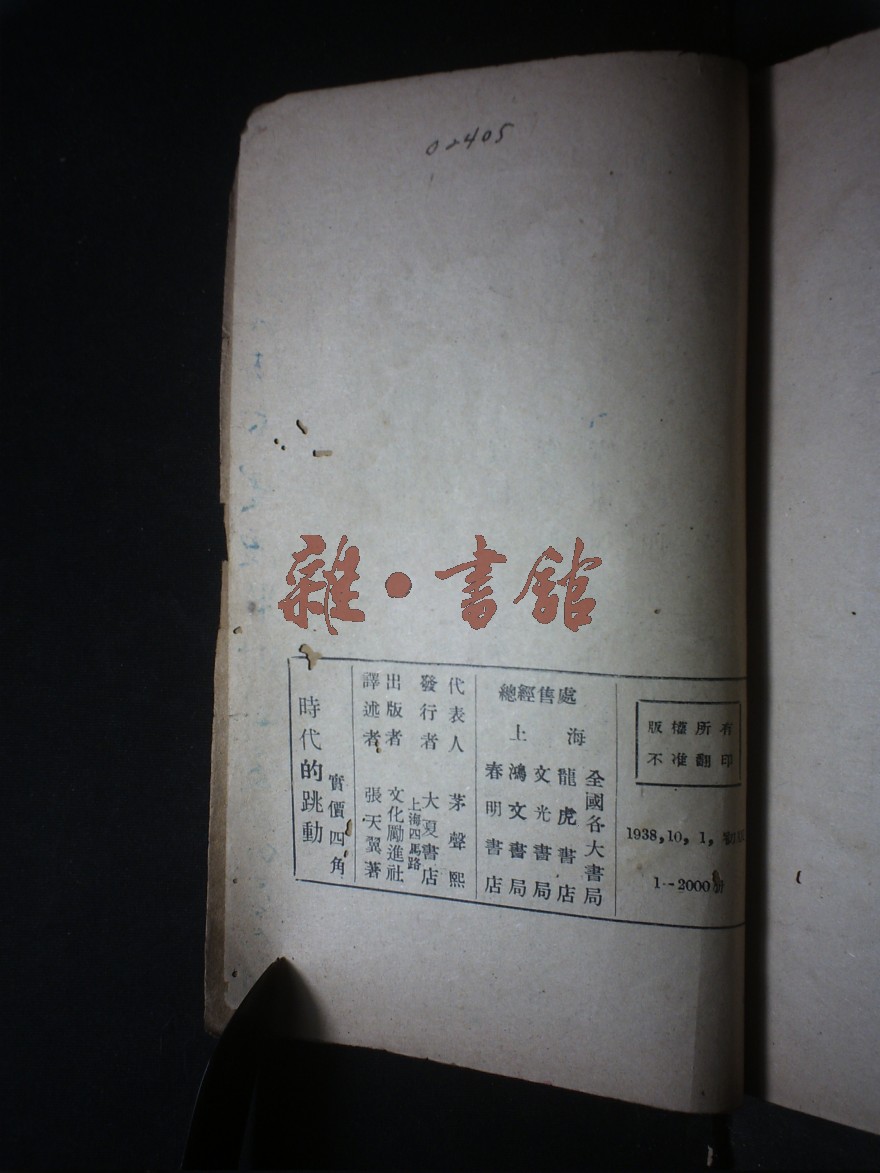 02405
雜・書舘
版權所有
不准翻印
1938,10,1,
1--2000
總經售處
上海
全國各大書局
龍虎書店
文光書局
鴻文書局
春明書店
代表人 茅聲熙
發行者 大夏書店
上海四馬路
出版者 文化勵進社
譯述者 張天翼著
實價四角
時代的跳動